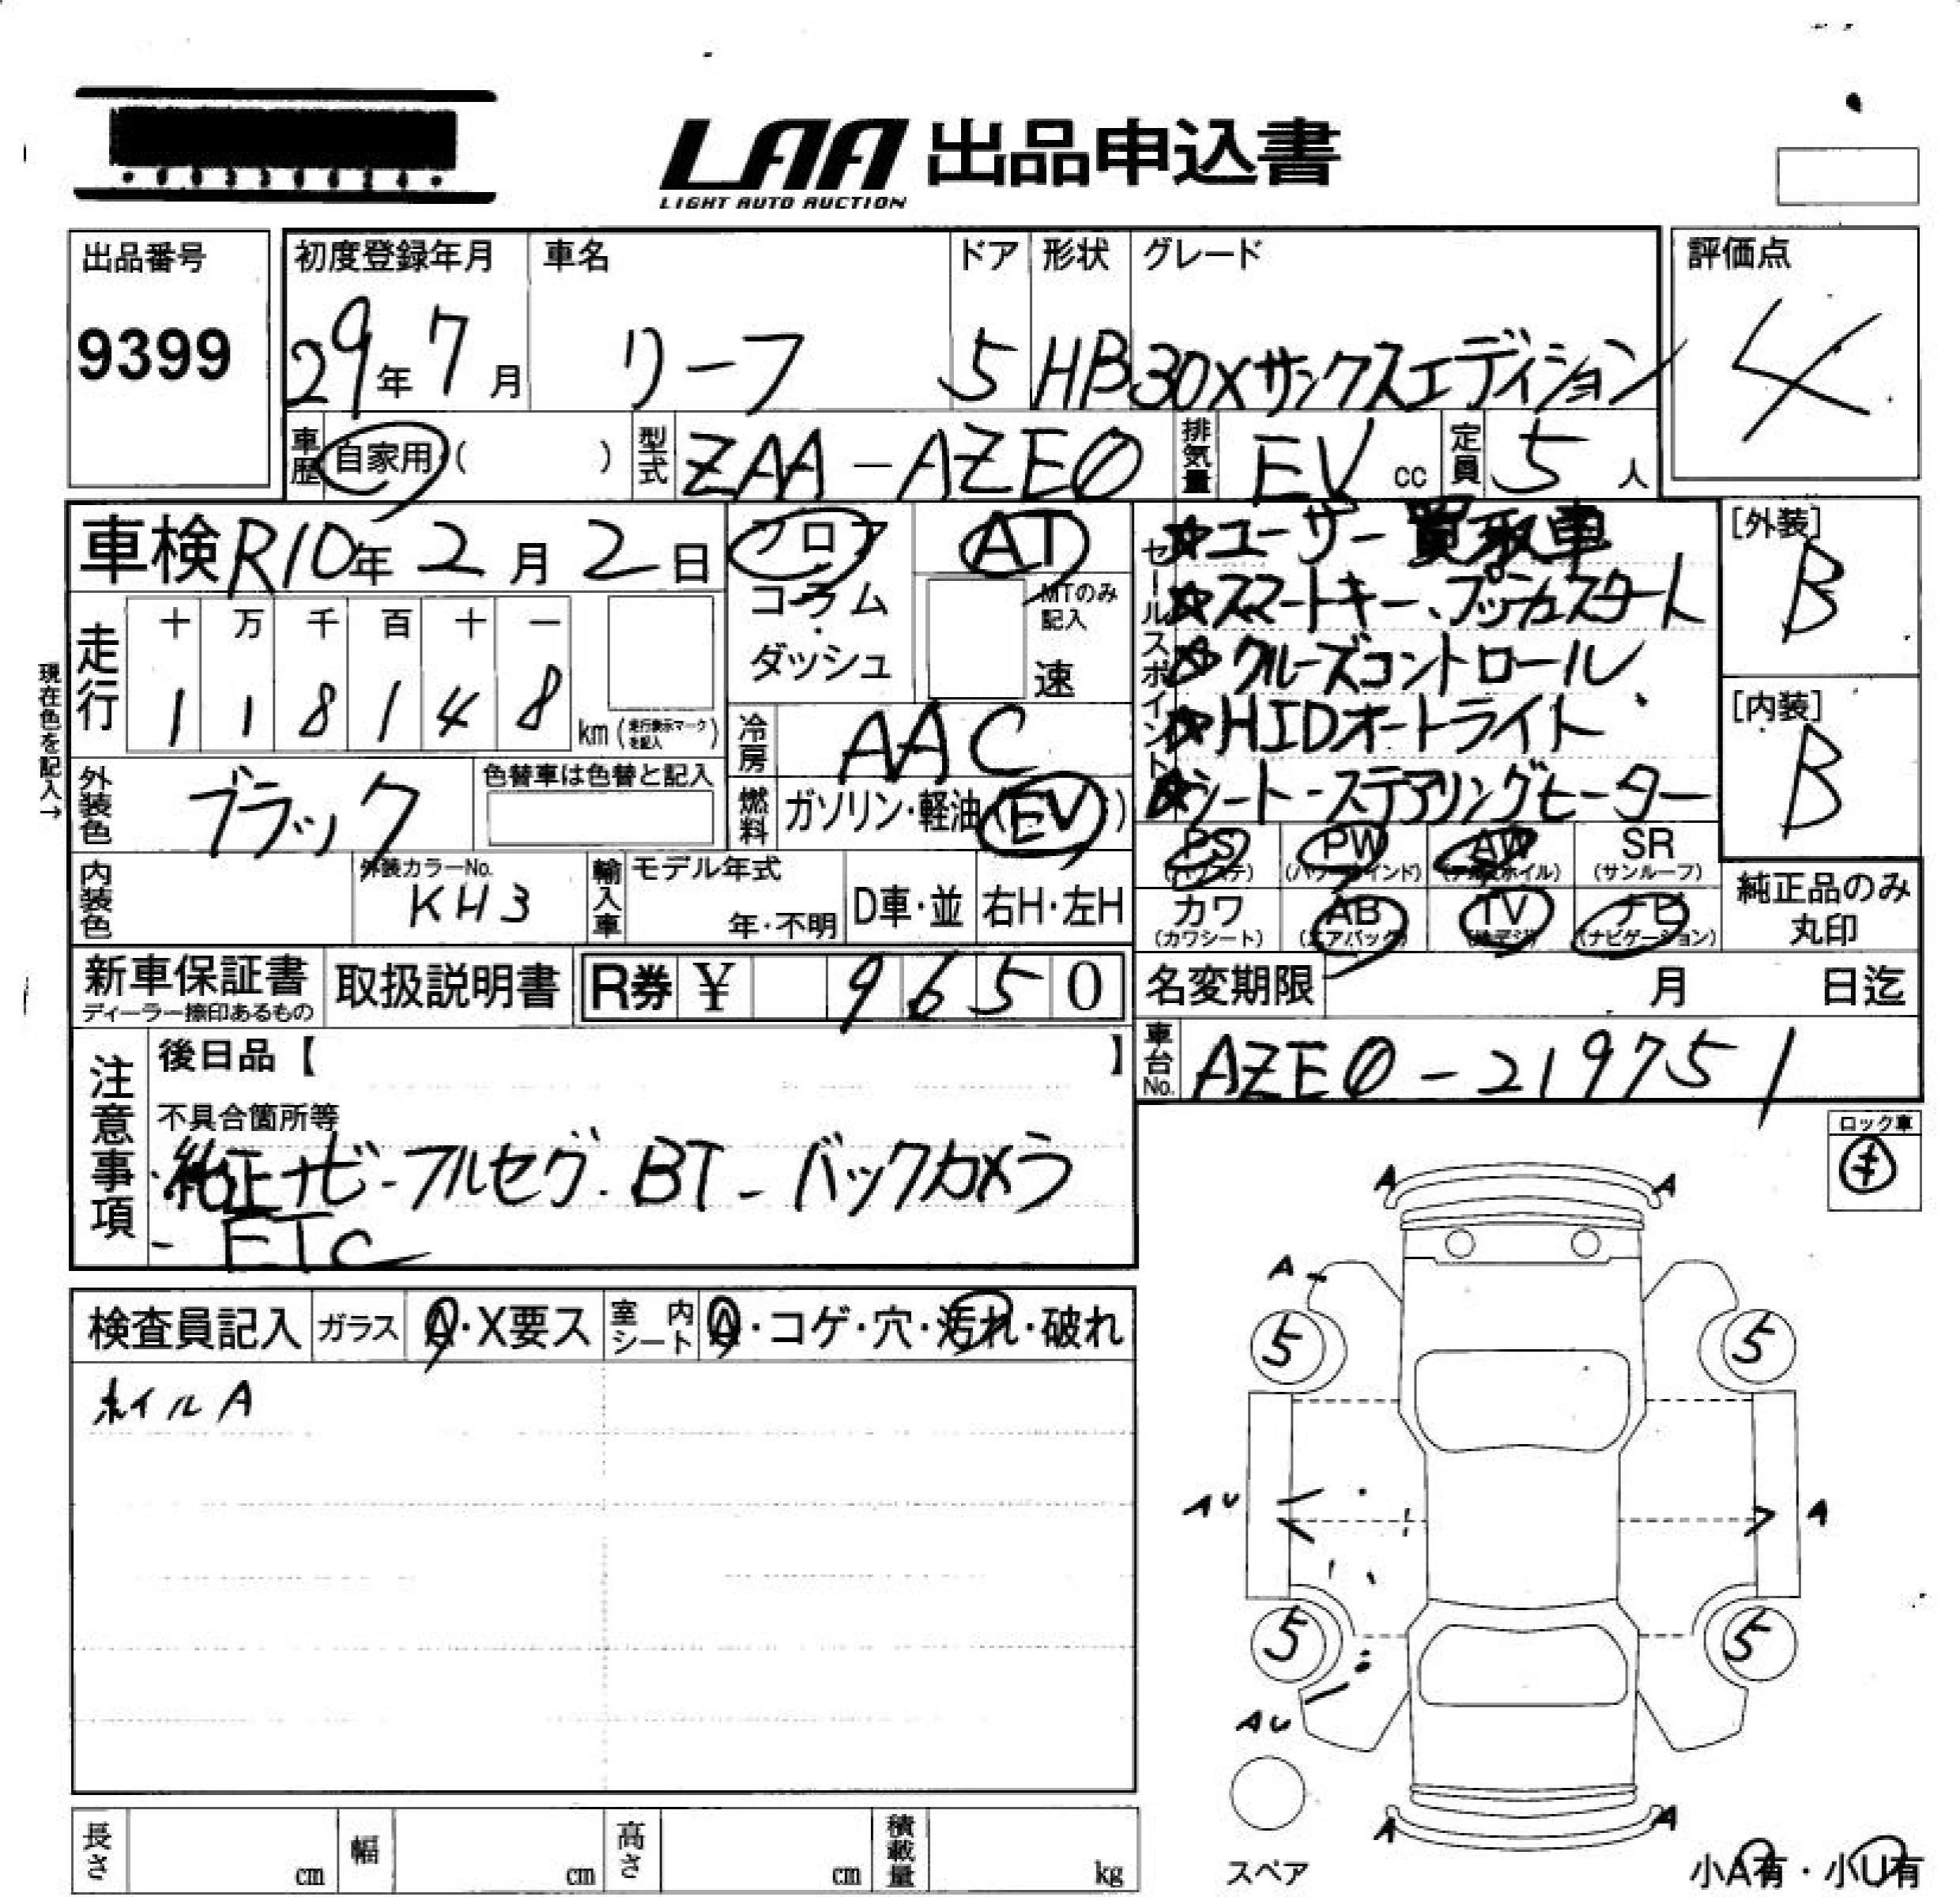 LAA 出品申込書
LIGHT AUTO AUCTION
出品番号
9399
初度登録年月
29年7月
車名
リーフ
ドア
5
形状
HB
グレード
30Xサンクスエディション
評価点
4
車歴 自家用 ( )
型式 ZAA-AZE0
排気量 EV cc
定員 5人
車検 R10年2月2日
フロア
コラム
・
ダッシュ
AT
MTのみ記入
速
セールスポイント
☆ユーザー買取車
☆スマートキー、プッシュスタート
☆クルーズコントロール
☆HIDオートライト
☆シート-ステアリングヒーター
[外装]
B
[内装]
B
現在色を記入→
走行
十 万 千 百 十 一
1 1 8 1 4 8 km (走行表示マークを記入)
冷房 AAC
外装色 ブラック
色替車は色替と記入
燃料 ガソリン・軽油 (EV)
内装色
外装カラーNo.
KH3
輸入車
モデル年式
年・不明
D車・並
右H・左H
PS (パワステ)
PW (パワーウインド)
AW (アルミホイル)
SR (サンルーフ)
カワ (カワシート)
AB (エアバック)
TV (地デジ)
ナビ (ナビゲーション)
純正品のみ
丸印
新車保証書
ディーラー捺印あるもの
取扱説明書
R券 ¥ 9650
名変期限 月 日迄
車台No. AZE0-219751
注意事項
後日品【 】
不具合箇所等
純正ナビ-フルセグ.BT-バックカメラ
-ETC
ロック車
キ
検査員記入
ガラス A・X要ス
室内シート A・コゲ・穴・汚れ・破れ
ホイルA
A A
A
5 5
AU A
5 5
AU
A A
スペア
小A有・小U有
長さ cm
幅 cm
高さ cm
積載量 kg